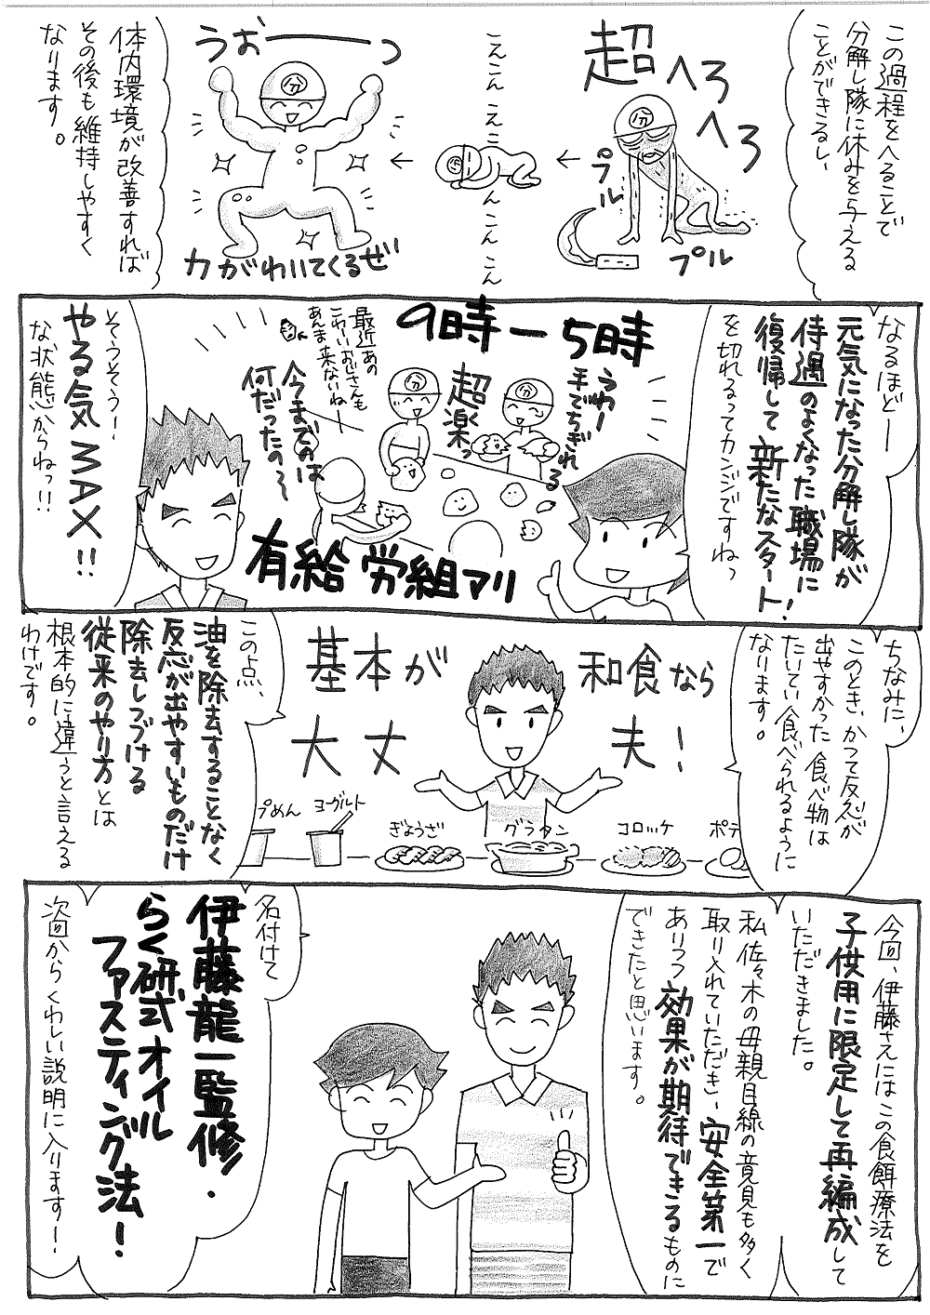 この過程をへることで
分解し隊に休みを与える
ことができるし、
超へろ
へろ
プル
プル
分
えこんえこんえこんこんこん
分
うおーーっ
分
力がわいてくるぜ
体内環境が改善すれば
その後も維持しやすく
なります。
なるほどー
元気になった分解し隊が
待遇のよくなった職場に
復帰して新たなスタート!
を切れるってカンジですねっ
9時ー5時
うわー
手でちぎれる
分
超楽っ
分
最近あの
こわーいおじさんも
あんま来ないねー
今までのは
何だったの〜
有給 労組アリ
そうそうー、
やる気MAX!!
な状態からねっ!!
ちなみに、
このとき、かつて反応が
出やすかった食べ物は
たいてい食べられるように
なります。
基本が和食なら
大丈夫!
プめん
ヨーグルト
ぎょうざ
グラタン
コロッケ
ポテ
この点、
油を除去することなく
反応が出やすいものだけ
除去しつづける
従来のやり方とは
根本的に違うと言える
わけです。
今回、伊藤さんにはこの食餌療法を
子供用に限定して再編成して
いただきました。
私佐々木の母親目線の意見も多く
取り入れていただき、安全第一で
ありつつ効果が期待できるものに
できたと思います。
名付けて
伊藤龍一監修・
らく研式オイル
ファスティング法!
次回からくわしい説明に入ります!ー